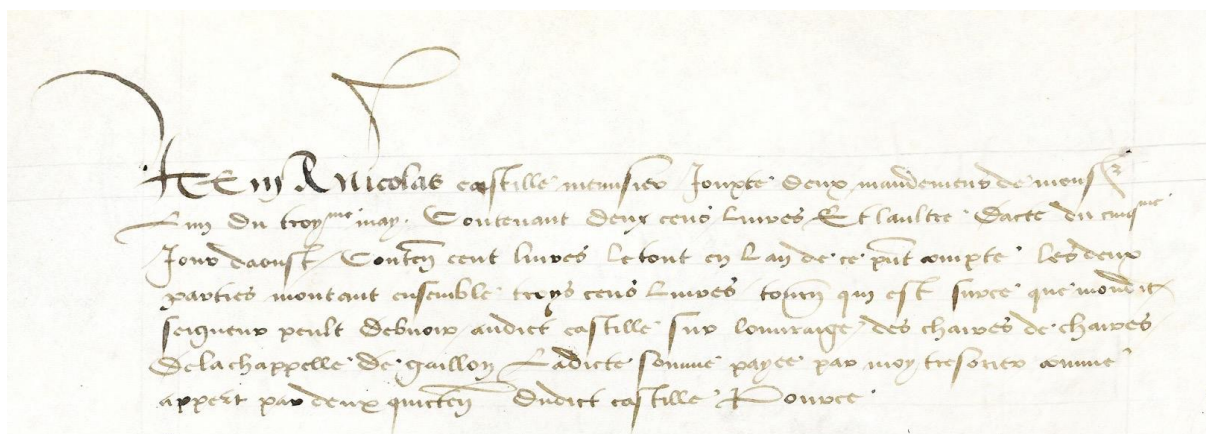 Item A Nicolas castille menusier Jouxte deux mandemens de mons^r
Lun du troy^me may Contenant deux cens Livres Et laultre dacte du cinq^me
Jour daoust Conten cent livres le tout en Lan de ce pnt compte les deux
parties montant ensemble troys cens Livres tourn qui est surce que mondict
seigneur peult debvoir audict castille sur louvraige des chaires de chaires
De la chappelle de gaillon Ladicte somme payee par moy tresorier comme
appert par deux quicten Dudict castille Pource